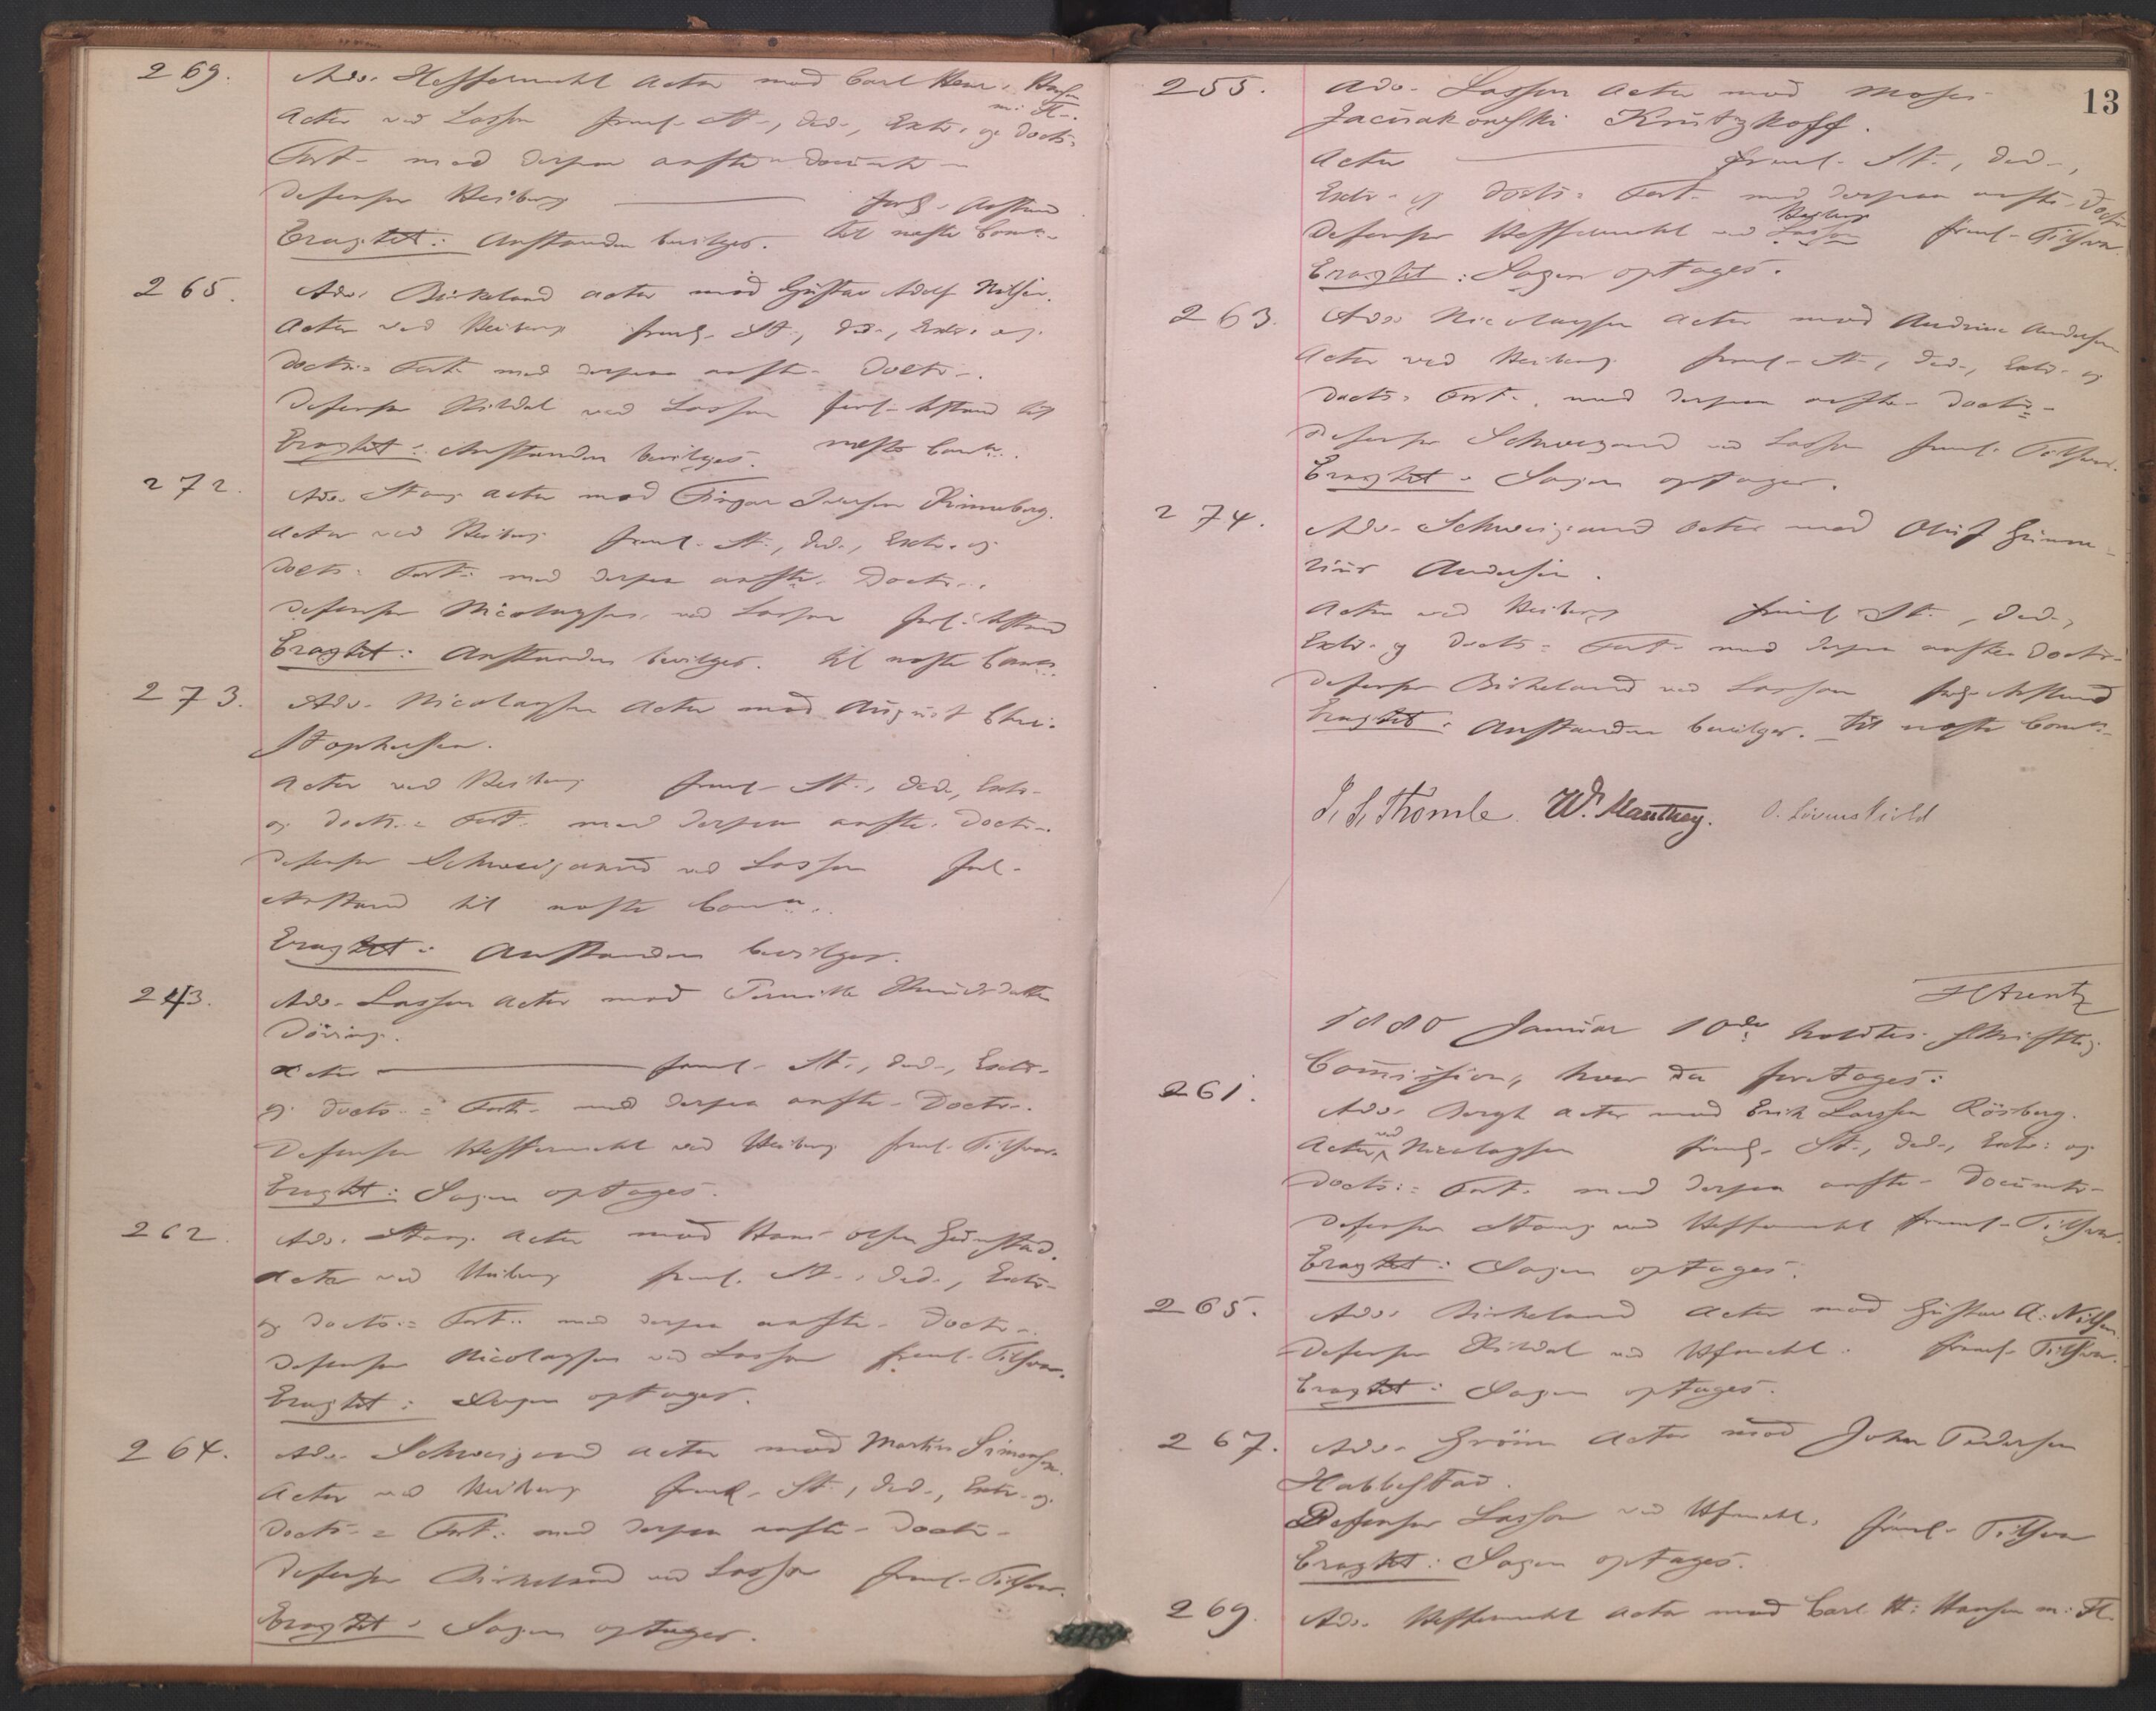 269.
Adv. Heffermehl Actor mod Carl Henr. Hansen
m. Fl.
Actor ved Lasson freml. St., Ded., Extr. og Doctr.
Fort. med derpaa anførte Documtr.
Defensor Heiberg forl. Anstand
Eragtet: Anstanden bevilges. til næste Comn.
265.
Adv. Birkeland Actor mod Gustav Adolf Nilsen.
Actor ved Heiberg freml. St., Ded., Extr. og
Doctr. Fort. med derpaa anførte Doctr.
Defensor Rildal ved Lasson forl. Anstand til
Eragtet: Anstanden bevilges. næste Comn.
272.
Adv. Stang Actor mod Iversen Rinneberg.
Actor ved Heiberg freml. St., Ded., Extr. og
Doctr. Fort. med derpaa anførte Doctr.
Defensor Nicolaysen ved Lasson forl. Anstand
Eragtet: Anstanden bevilges. til næste Comn.
273.
Adv. Nicolaysen Actor mod August Chri-
stophersen.
Actor ved Heiberg freml. St., Ded., Extr.
og Doctr. Fort. med derpaa anførte Doctr.
Defensor Schweigaard ved Lasson forl.
Anstand til næste Comn.
Eragtet: Anstanden bevilges.
243.
Adv. Lasson Actor mod Pernille Knudsdatter
Döving.
Actor freml. St., Ded., Extr.
og Doctr. Fort. med derpaa anførte Doctr.
Defensor Heffermehl ved Heiberg freml. Tilsvar.
Eragtet: Sagen optages.
262.
Adv. Stang Actor mod Hans Olsen
Actor ved Heiberg freml. St., Ded., Extr.
og Doctr. Fort. med derpaa anførte Doctr.
Defensor Nicolaysen ved Lasson freml. Tilsvar.
Eragtet: Sagen optages.
264.
Adv. Schweigaard Actor mod Martin Simonsen.
Actor ved Heiberg freml. St., Ded., Extr. og
Doctr. Fort. med derpaa anførte Doctr.
Defensor Birkeland ved Lasson freml. Tilsvar.
Eragtet: Sagen optages.
13
255.
Adv. Lasson Actor mod Moses
Krützkoff.
Actor freml. St., Ded.,
Extr. og Doctr. Fort. med derpaa anførte Doctr.
Heiberg
Defensor Heffermehl ved Lasson freml. Tilsvar.
Eragtet: Sagen optages.
263.
Adv. Nicolaysen Actor mod Andrine Andersen
Actor ved Heiberg freml. St., Ded., Extr. og
Doctr. Fort. med derpaa anførte Doctr.
Defensor Schweigaard ved Lasson freml. Tilsvar.
Eragtet: Sagen optages.
274.
Adv. Schweigaard Actor mod Oluf Gunne-
rius Andersen.
Actor ved Heiberg freml. St., Ded.,
Extr. og Doctr. Fort. med derpaa anførte Doctr.
Defensor Birkeland ved Lasson forl. Anstand
Eragtet: Anstanden bevilges. til næste Comn.
J. S. Thomle W. Manthey. O. Lövenskiold
Arentz
1880 Januar 10de holdtes skriftlig
Commission, hvor da foretoges:
261.
Adv. Bergh Actor mod Erik Larssen Rösberg.
Actor ved Nicolaysen freml. St., Ded., Extr. og
Doctr. Fort. med derpaa anførte Documtr.
Defensor Stang ved Heffermehl freml. Tilsvar.
Eragtet: Sagen optages.
265.
Adv. Birkeland Actor mod Gustav A. Nilsen
Defensor Rildal ved Hfrmehl. freml. Tilsvar.
Eragtet: Sagen optages.
267.
Adv. Gröm Actor mod John Pedersen
Habbestad.
Defensor Lasson ved Hfrmehl. freml. Tilsvar
Eragtet: Sagen optages.
269.
Adv. Heffermehl Actor mod Carl H. Hansen m. Fl.